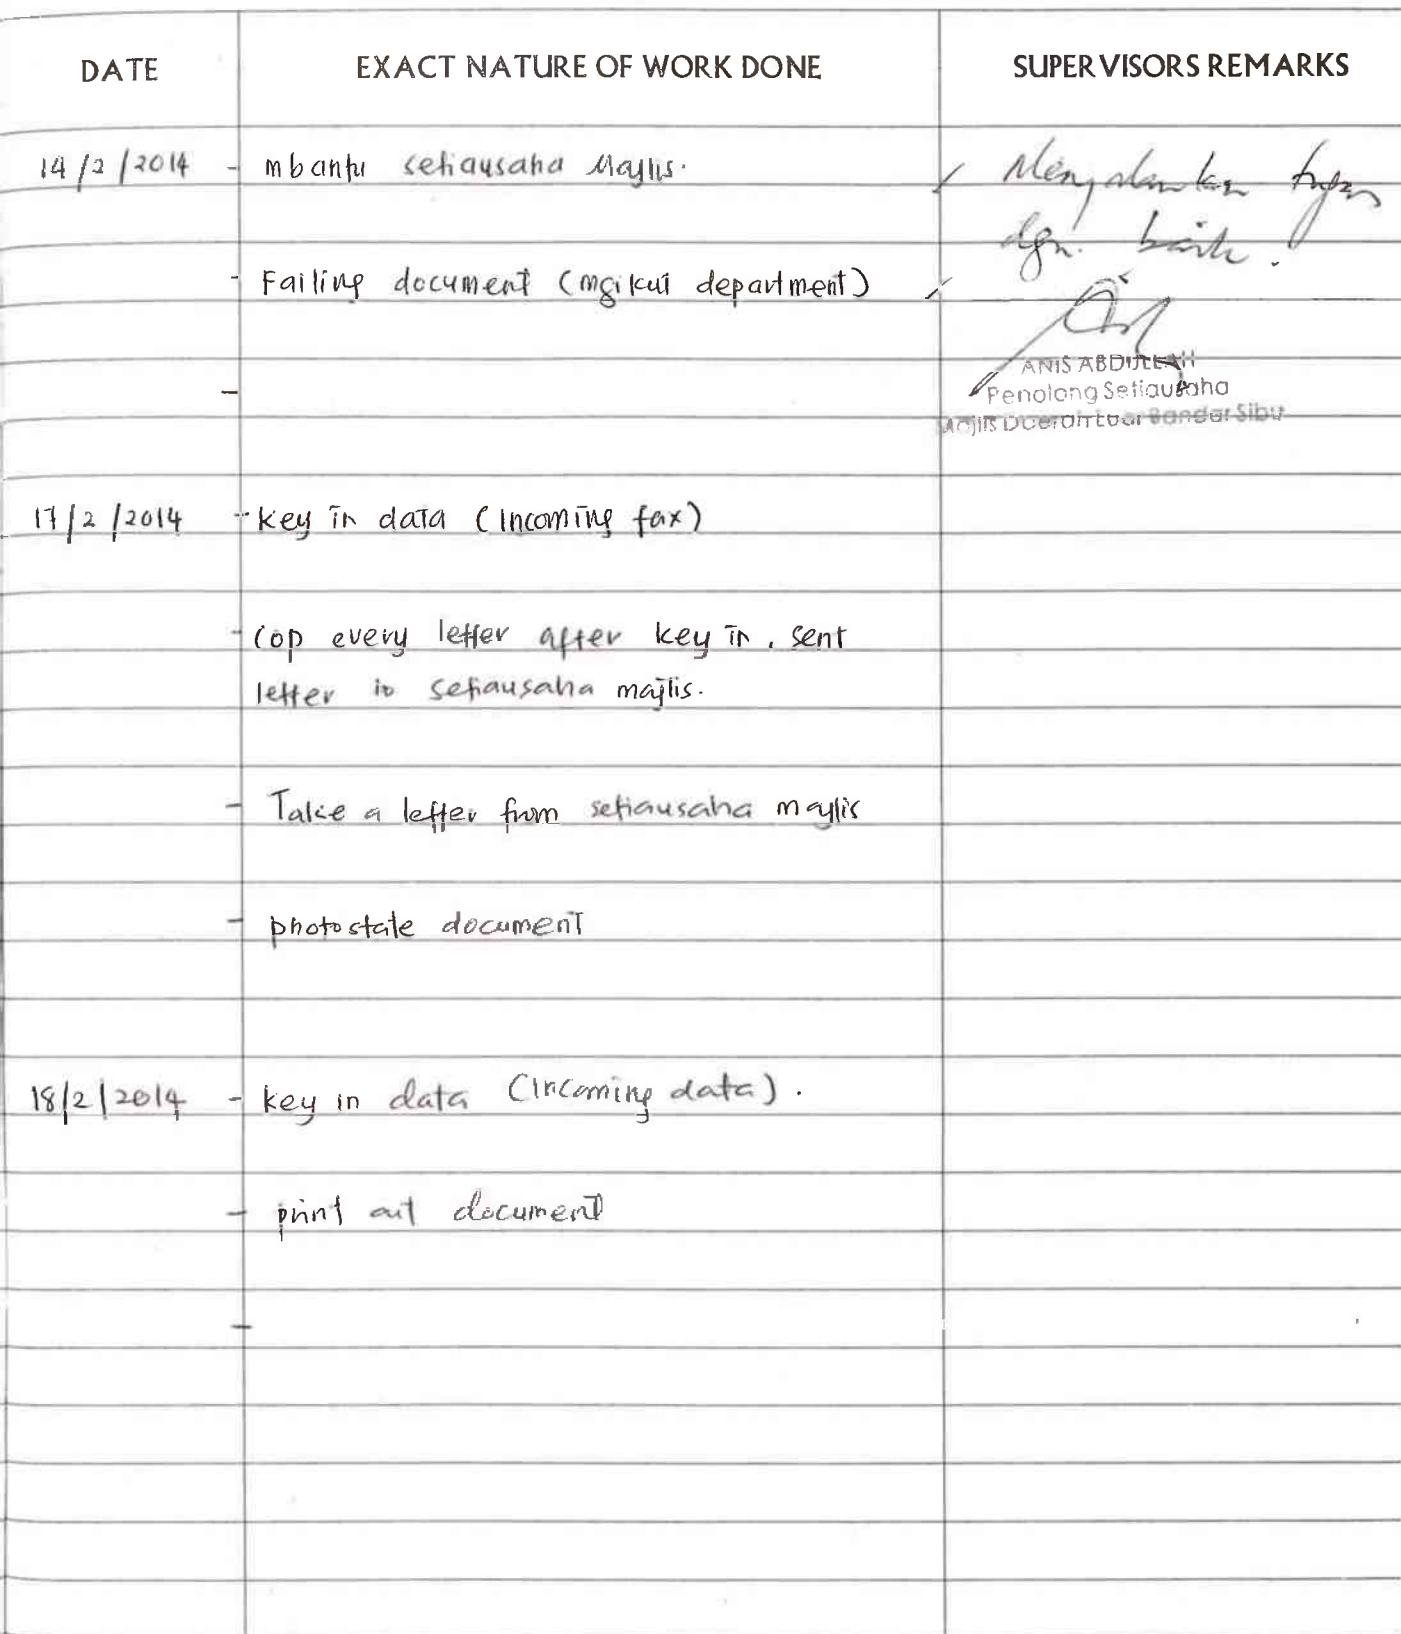 DATE EXACT NATURE OF WORK DONE SUPERVISORS REMARKS
14/2/2014 - mbantu setiausaha Majlis. / Menjalankan tugas
dgn. baik.
- Failing document (mgikut department) /
ANIS ABDULLAH
- Penolong Setiausaha
Majlis Daerah Luar Bandar Sibu
17/2/2014 - key in data (Incoming fax)
- Cop every letter after key in, sent
letter to setiausaha majlis.
- Take a letter from setiausaha majlis
- photostate document
18/2/2014 - key in data (Incoming data).
- print out document
-